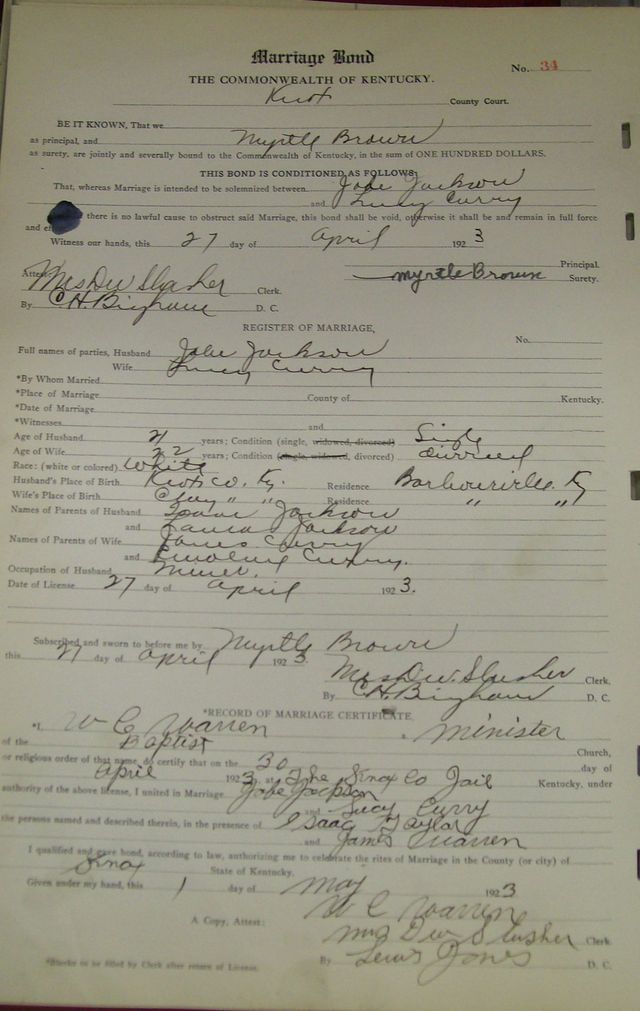 Marriage Bond
No. 34
THE COMMONWEALTH OF KENTUCKY.
Knox County Court.
BE IT KNOWN, That we
as principal, and Myrtle Brown
as surety, are jointly and severally bound to the Commonwealth of Kentucky, in the sum of ONE HUNDRED DOLLARS.
THIS BOND IS CONDITIONED AS FOLLOWS:
That, whereas Marriage is intended to be solemnized between Jobe Jackson
and Lucy Curry
there is no lawful cause to obstruct said Marriage, this bond shall be void, otherwise it shall be and remain in full force
and ef
Witness our hands, this 27 day of April 1923
Principal.
Attest Mrs D W Slusher Clerk. Myrtle Brown Surety.
By C H. Bingham D. C.
REGISTER OF MARRIAGE,
No.
Full names of parties, Husband Jobe Jackson
Wife Lucy Curry
*By Whom Married
*Place of Marriage County of Kentucky.
*Date of Marriage
*Witnesses and
Age of Husband 21 years; Condition (single, widowed, divorced) Single
Age of Wife 22 years; Condition (single, widowed, divorced) divorced
Race: (white or colored) White
Husband's Place of Birth Knox Co. Ky. Residence Barbourville. Ky
Wife's Place of Birth Clay " " Residence " "
Names of Parents of Husband Isaac Jackson
and Laura Jackson
Names of Parents of Wife James Curry
and Curry.
Occupation of Husband Miner.
Date of License 27 day of April 1923.
Subscribed and sworn to before me by Myrtle Brown
this 27 day of April 1923.
Mrs D. W. Slusher Clerk.
By C H. Bingham D. C.
*RECORD OF MARRIAGE CERTIFICATE,
*I, W C Warren a Minister
of the Baptist Church,
or religious order of that name, do certify that on the 30 day of
April 1923, at The Knox Co Jail Kentucky, under
authority of the above license, I united in Marriage Jobe Jackson
and Lucy Curry
the persons named and described therein, in the presence of Isaac Taylor
and James Warren
I qualified and gave bond, according to law, authorizing me to celebrate the rites of Marriage in the County (or city) of
Knox State of Kentucky.
Given under my hand, this 1 day of May 1923
W C Warren
A Copy, Attest: Mrs D W Slusher Clerk
By Lewis Jones D. C.
*Blanks to be filled by Clerk after return of License.